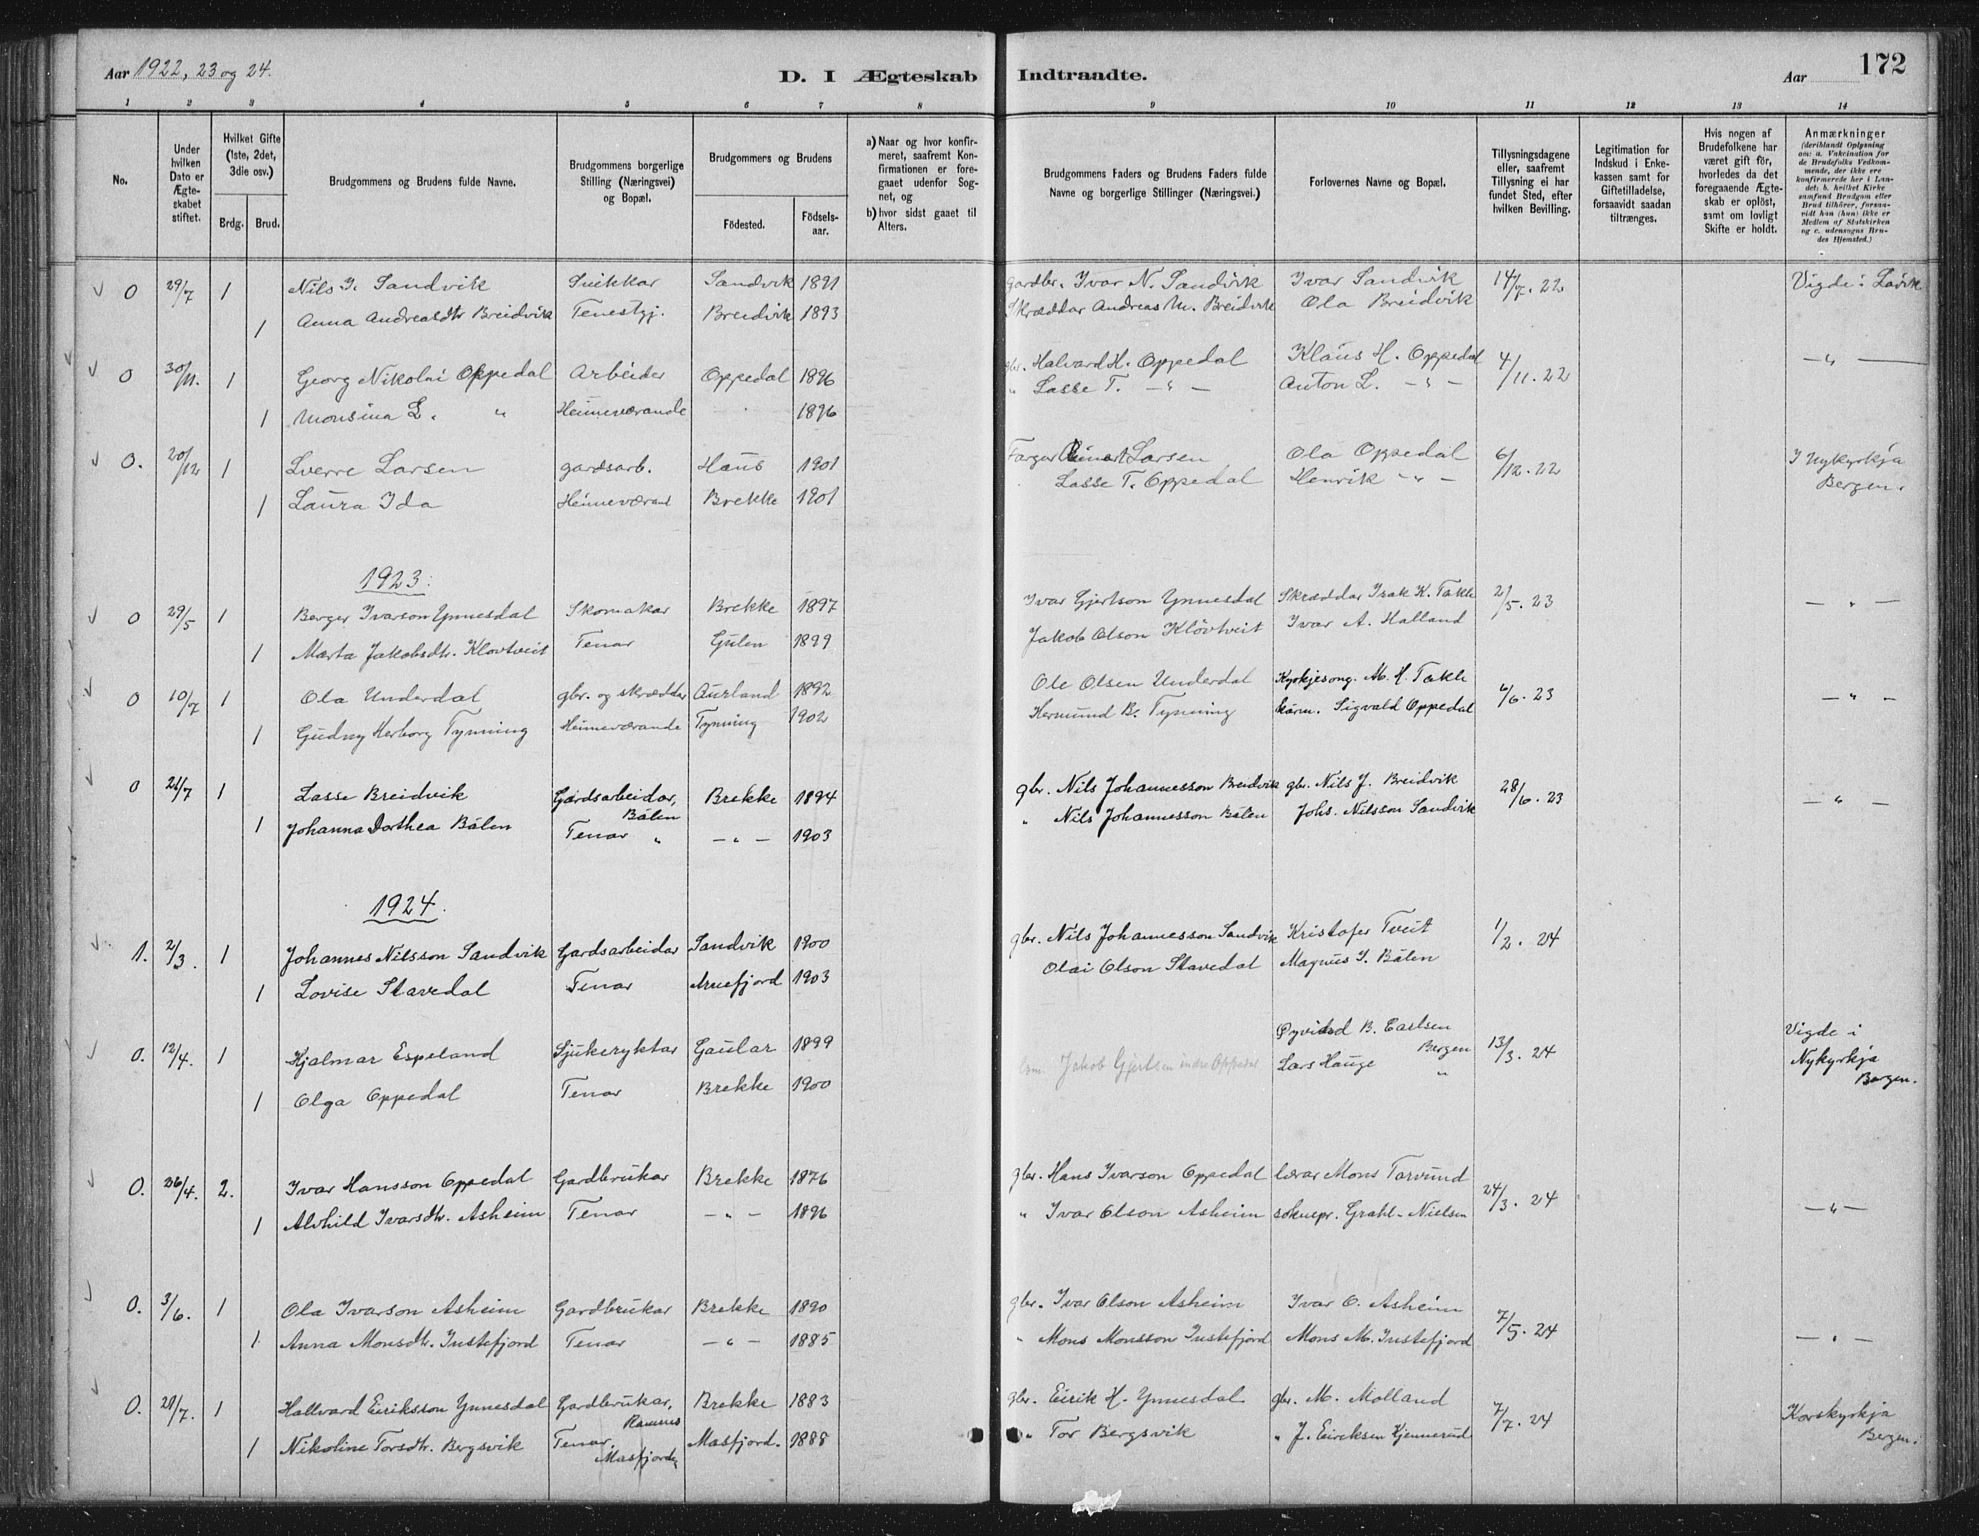 Aar 1922, 23 og 24.
D. I Ægteskab Indtraadte.
Aar 172
1 2 3 4 5 6 7 8 9 10 11 12 13 14
No.
Under hvilken Dato er Ægteskabet stiftet.
Hvilket Gifte (1ste, 2det, 3die osv.)
Brdg. Brud.
Brudgommens og Brudens fulde Navne.
Brudgommens borgerlige Stilling (Næringsvei) og Bopæl.
Brudgommens og Brudens
Fødested. Fødselsaar.
a) Naar og hvor konfirmeret, saafremt Konfirmationen er foregaaet udenfor Sognet, og
b) hvor sidst gaaet til Alters.
Brudgommens Faders og Brudens Faders fulde Navne og borgerlige Stillinger (Næringsvei.)
Forlovernes Navne og Bopæl.
Tillysningsdagene eller, saafremt Tillysning ei har fundet Sted, efter hvilken Bevilling.
Legitimation for Indskud i Enkekassen samt for Giftetilladelse, forsaavidt saadan tiltrænges.
Hvis nogen af Brudefolkene har været gift før, hvorledes da det foregaaende Ægteskab er opløst, samt om lovligt Skifte er holdt.
Anmærkninger (deriblandt Oplysning om: a. Vakcination for de Brudefolks Vedkommende, der ikke ere konfirmerede her i Landet; b. hvilket Kirkesamfund Brudgom eller Brud tilhører, forsaavidt han (hun) ikke er Medlem af Statskirken og c. udensogns Brudes Hjemsted.)
0 29/7 1 Nils I. Sandvik Snikkar Sandvik 1891 gardbr. Ivar N. Sandvik Ivar Sandvik 14/7. 22 Vigde i Lavik
1 Anna Andreasdtr Breidvik Tenestgj. Breidvik 1893 Skræddar Andreas M. Breidvik Ola Breidvik
0 30/11. 1 Georg Nikolai Oppedal Arbeider Oppedal 1896 gbr. Halvard H. Oppedal Klaus H. Oppedal 4/11. 22 — " —
1 Monsina L. " Heimeværande 1896 " Lasse T. — " — Anton L. — " —
0. 20/12 1 Sverre Larsen gardsarb. Haus 1901 Farger Larsen Ola Oppedal 6/12. 22 I Nykyrkja
1 Laura Ida Heimeværand Brekke 1901 Lasse T. Oppedal Henrik — " — Bergen.
1923.
0 29/5 1 Berger Ivarson Ynnesdal Skomakar Brekke 1897 Ivar Gjertson Ynnesdal Skræddar Isak K. Takle 2/5. 23 — " —
1 Marta Jakobsdtr. Kløvtveit Tenar Gulen 1899 Jakob Olson Kløvtveit Ivar A. Halland
0 10/7 1 Ola Underdal gbr. og skrædder Aurland 1892 Ole Olsen Underdal Kyrkjesong. M. H. Takle 6/6. 23 — " —
1 Gudny Herborg Tynning Heimeværande Tynning 1902 Hermund B. Tynning Sigvald Oppedal
0 21/7 1 Lasse Breidvik Gardsarbeidar, Bålen Brekke 1894 gbr. Nils Johannesson Breidvik gbr. Nils J. Breidvik 28/6. 23 — " —
1 Johanna Dorthea Bålen Tenar " — " — 1903 " Nils Johannesson Bålen Johs. Nilsson Sandvik
1924.
1. 2/3. 1 Johannes Nilsson Sandvik Gardsarbeidar Sandvik 1900 gbr. Nils Johannesson Sandvik Kristofer Tveit 1/2. 24
1 Lovise Stavedal Tenar Arnefjord 1903 Olai Olson Stavedal Magnus I. Bålen
0. 12/4. 1 Hjalmar Espeland Sjukeryktar Gaular 1899 Øyvind B. Carlsen Bergen 13/3. 24 Vigde i Nykyrkja
1 Olga Oppedal Tenar Brekke 1900 Jakob Gjertsen indre Oppedal Lars Hauge " Bergen.
0. 26/4. 2. Ivar Hansson Oppedal Gardbrukar Brekke 1876 gbr. Hans Ivarson Oppedal lærar Mons Torvund 24/3. 24 — " —
1 Alvhild Ivarsdtr. Asheim Tenar — " — 1896 " Ivar Olson Asheim soknepr. Grahl-Nielsen
0. 3/6. 1 Ola Ivarson Asheim Gardbrukar Brekke 1890 gbr. Ivar Olson Asheim Ivar O. Asheim 7/5. 24 — " —
1. Anna Monsdtr. Instefjord Tenar — " — 1885 " Mons Monsson Instefjord Mons M. Instefjord
0. 29/7. 1 Hallvard Eiriksson Ynnesdal Gardbrukar, Brekke 1883 gbr. Eirik H. Ynnesdal gbr. M. Molland 7/7. 24 Korskyrkja
1 Nikoline Torsdtr. Bergsvik Tenar, Masfjorden Masfjord. 1888 " Tor Bergsvik " J. Eireksen Kjennerud Bergen.